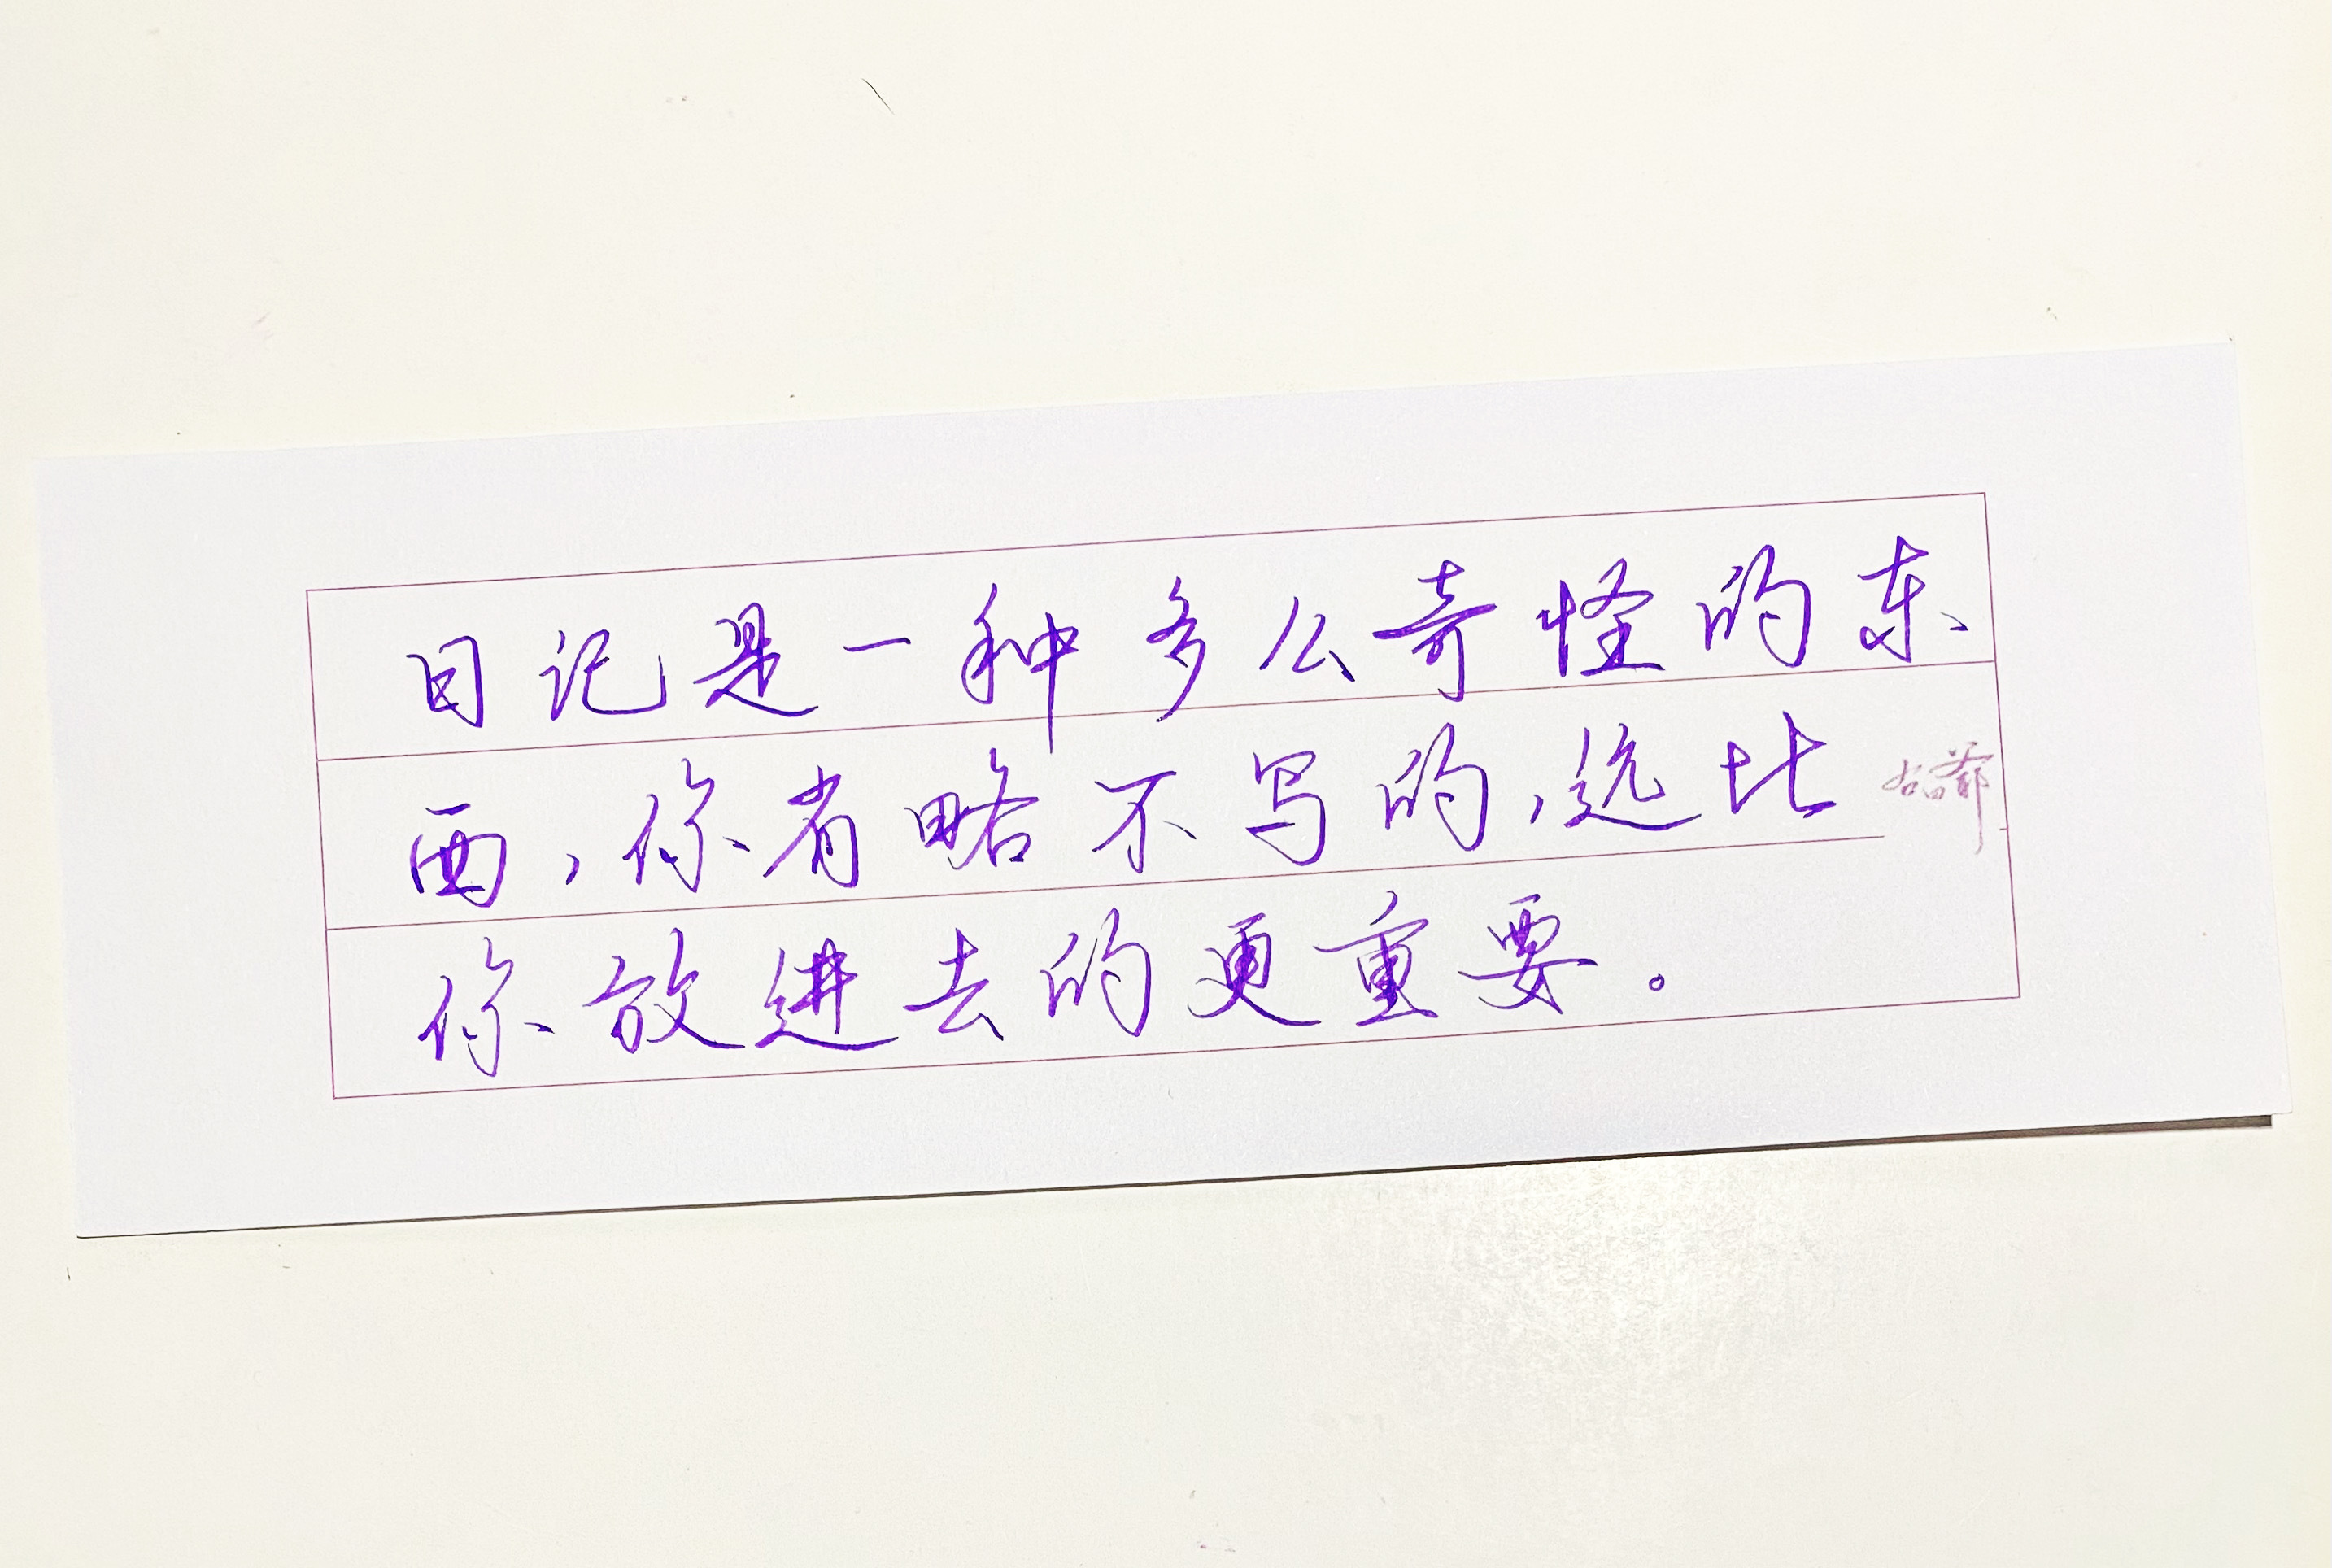 日记是一种多么奇怪的东
西，你省略不写的，远比
你放进去的更重要。